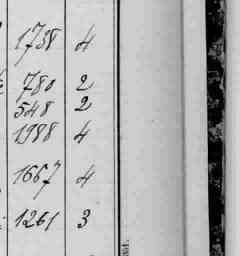 1738 4
780 2
548 2
1988 4
1667 4
1261 3